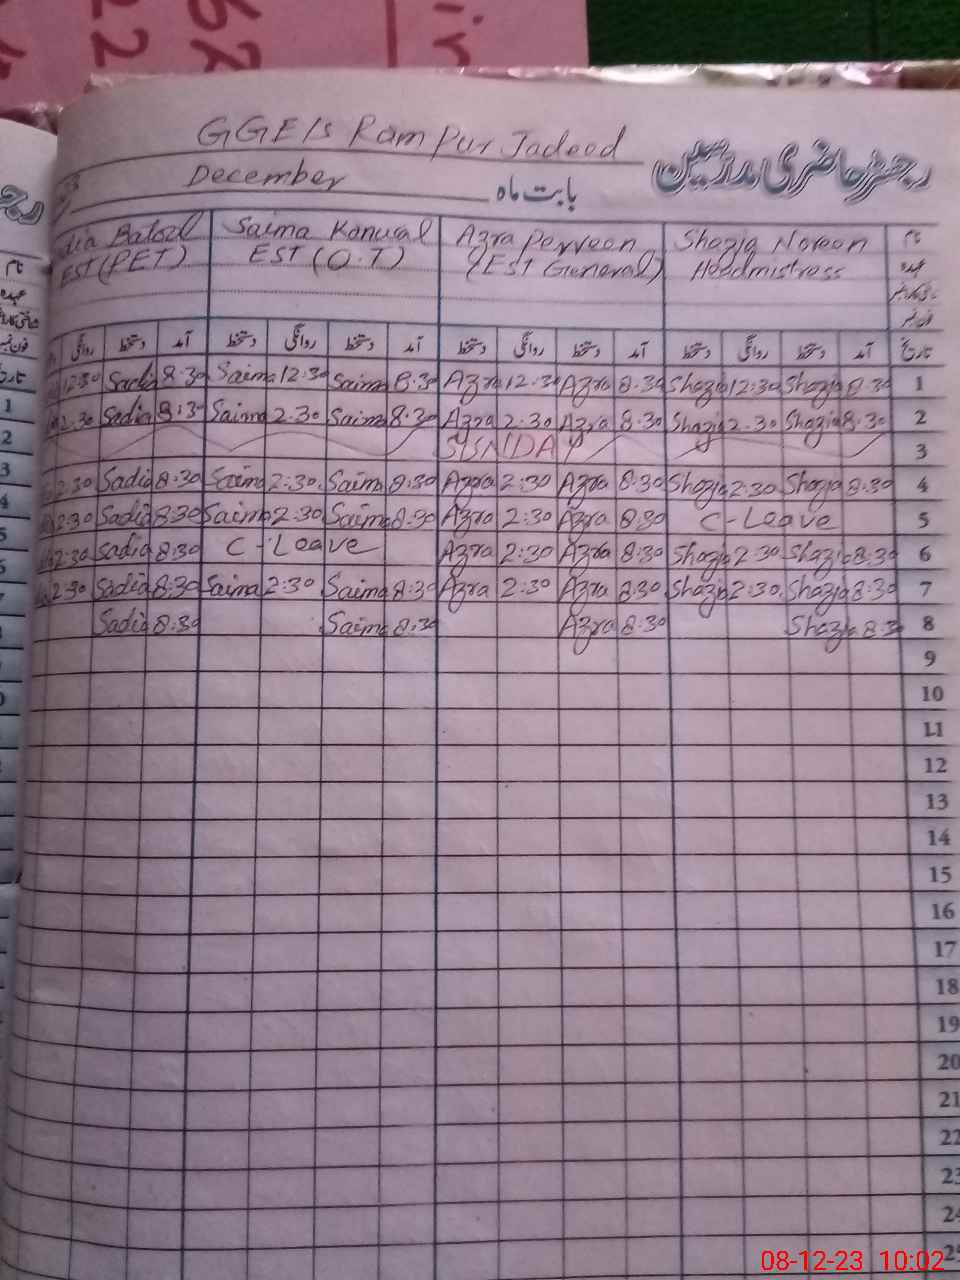 GGE/s Rampur Jadeed
رجسٹر حاضری مدرسین
December بابت ماہ
Saima Kanwal Azra Perveen Shazia Noreen نام
EST (PET) EST (O.T) (EST General) Headmistress عہدہ
فون نمبر
روانگی دستخط آمد دستخط روانگی دستخط آمد دستخط روانگی دستخط آمد دستخط روانگی دستخط آمد تاریخ
12:30 Sadia 8:30 Saima 12:30 Saima 8:30 Azra 12:30 Azra 8:30 Shazia 12:30 Shazia 8:30 1
2:30 Sadia 8:30 Saima 2:30 Saima 8:30 Azra 2:30 Azra 8:30 Shazia 2:30 Shazia 8:30 2
SUNDAY 3
2:30 Sadia 8:30 Saima 2:30 Saima 8:30 Azra 2:30 Azra 8:30 Shazia 2:30 Shazia 8:30 4
2:30 Sadia 8:30 Saima 2:30 Saima 8:30 Azra 2:30 Azra 8:30 C-Leave 5
2:30 Sadia 8:30 C-Leave Azra 2:30 Azra 8:30 Shazia 2:30 Shazia 8:30 6
2:30 Sadia 8:30 Saima 2:30 Saima 8:30 Azra 2:30 Azra 8:30 Shazia 2:30 Shazia 8:30 7
Sadia 8:30 Saima 8:30 Azra 8:30 Shazia 8:30 8
9
10
11
12
13
14
15
16
17
18
19
20
21
22
23
24
25
08-12-23 10:02